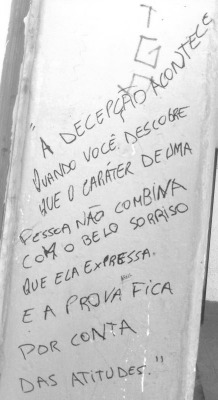 T
G
"A DECEPÇÃO ACONTECE
QUANDO VOCÊ DESCOBRE
QUE O CARÁTER DE UMA
PESSOA NÃO COMBINA
COM O BELO SORRISO
QUE ELA EXPRESSA.
E A PROVA FICA
POR CONTA
DAS ATITUDES."